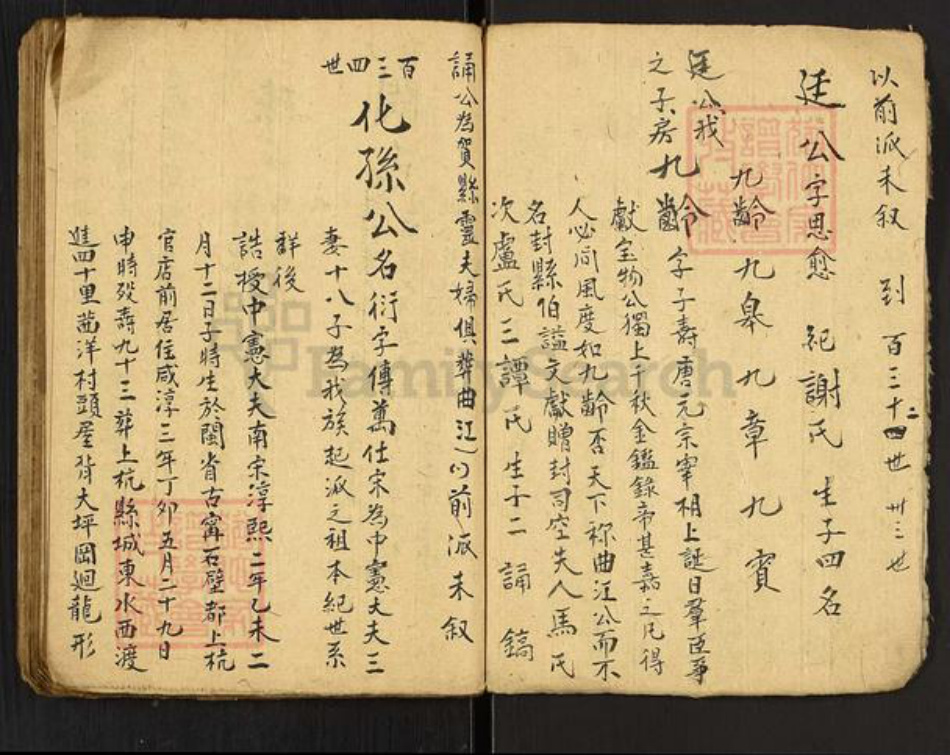 以前派未叙 到 百三十二四世 卅三世
廷公字思愈 妣謝氏 生子四名
九齡 九皋 九章 九賓
廷公我
之子房九齡字子壽唐元宗宰相上誕日羣臣爭
獻宝物公獨上千秋金鑑錄帝甚嘉之凡得
人必问風度如九齡否天下称曲江公而不
名封縣伯謚文獻贈封司空夫人馬氏
次盧氏三譚氏生子二 誦 鎬
誦公為賀縣靈夫婦俱葬曲江以前派未叙
百三四世
化孫公名衍字傳萬仕宋為中憲大夫三
妻十八子為我族起派之祖本紀世系
詳後
誥授中憲大夫南宋淳熙二年乙未二
月十二日子時生於閩省古寗石壁都上杭
官店前居住咸淳三年丁卯五月二十九日
申時殁壽九十三葬上杭縣城東水西渡
進四十里茜洋村頭屋背大坪岡迴龍形
FamilySearch